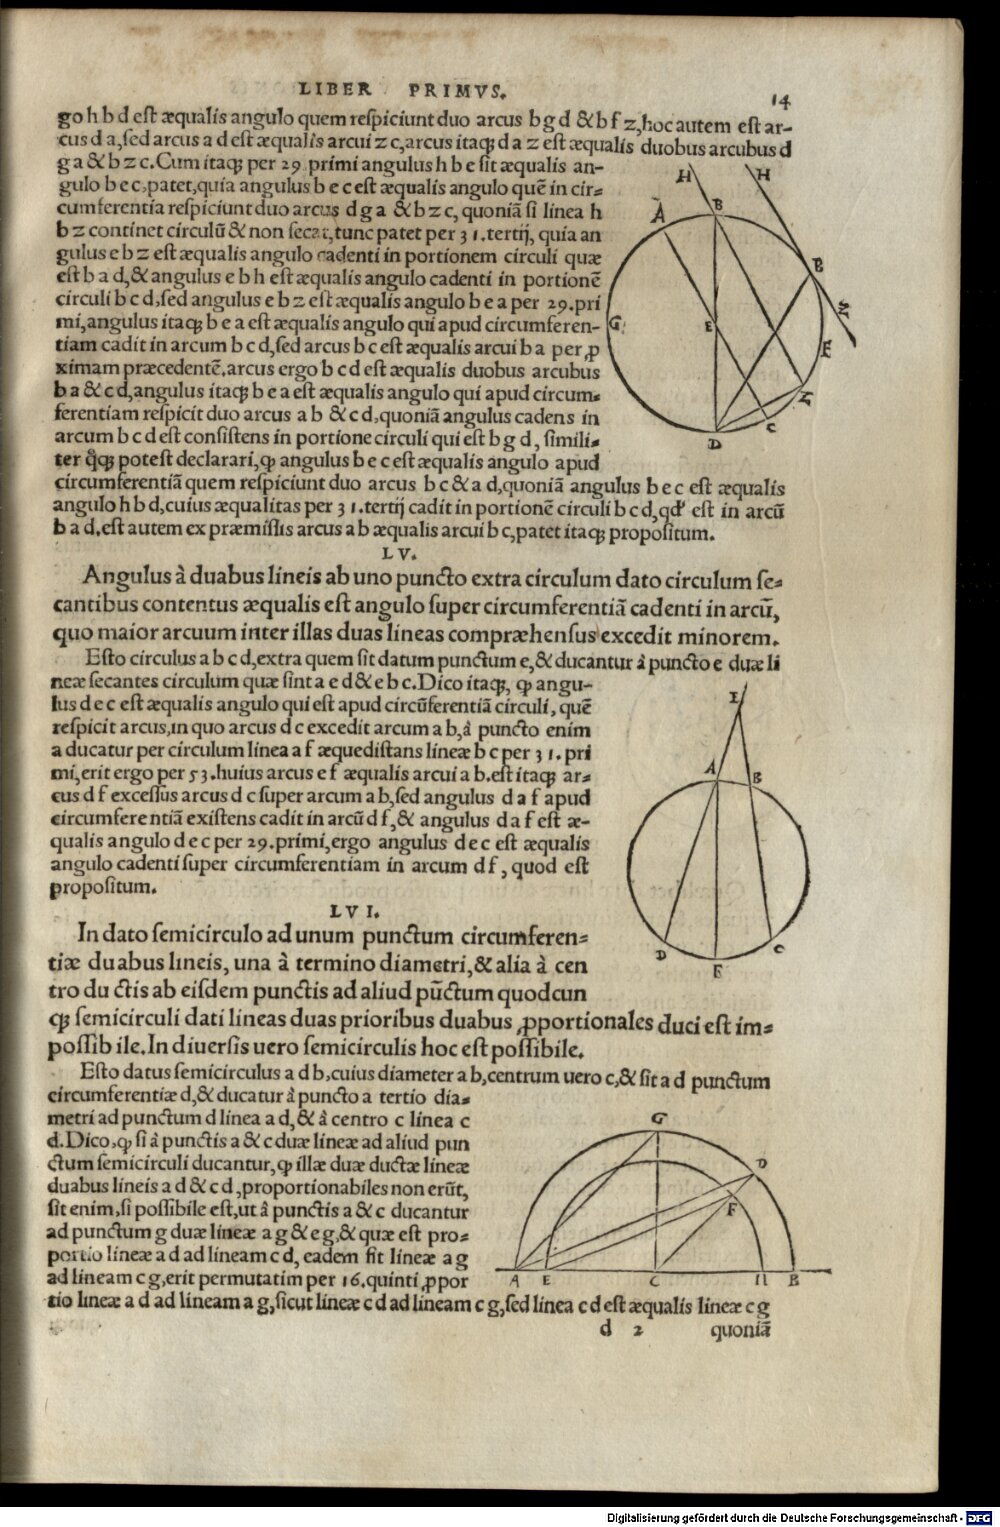 LIBER PRIMVS.
14
go h b d est æqualis angulo quem respiciunt duo arcus b g d & b f z, hoc autem est ar-
cus d a, sed arcus a d est æqualis arcui z c, arcus itaq; d a z est æqualis duobus arcubus d
g a & b z c. Cum itaq; per 29 primi angulus h b e sit æqualis an-
gulo b e c, patet, quia angulus b e c est æqualis angulo quẽ in cir=
cumferentia respiciunt duo arcus d g a & b z c, quoniã si linea h
b z continet circulũ & non secat, tunc patet per 31. tertij, quia an
gulus e b z est æqualis angulo cadenti in portionem circuli quæ
est b a d, & angulus e b h est æqualis angulo cadenti in portionẽ
circuli b c d, sed angulus e b z est æqualis angulo b e a per 29. pri
mi, angulus itaq; b e a est æqualis angulo qui apud circumferen-
tiam cadit in arcum b c d, sed arcus b c est æqualis arcui b a per ꝓ
ximam præcedentẽ, arcus ergo b c d est æqualis duobus arcubus
b a & c d, angulus itaq; b e a est æqualis angulo qui apud circum=
ferentiam respicit duo arcus a b & c d, quoniã angulus cadens in
arcum b c d est consistens in portione circuli qui est b g d, simili=
ter q̃q; potest declarari, ꝙ angulus b e c est æqualis angulo apud
circumferentiã quem respiciunt duo arcus b c & a d, quoniã angulus b e c est æqualis
angulo h b d, cuius æqualitas per 31. tertij cadit in portionẽ circuli b c d, qd' est in arcũ
b a d. est autem ex præmissis arcus a b æqualis arcui b c, patet itaq; propositum.
H
H
A
B
B
G
E
Z
F
Z
C
D
LV.
Angulus à duabus lineis ab uno puncto extra circulum dato circulum se=
cantibus contentus æqualis est angulo super circumferentiã cadenti in arcũ,
quo maior arcuum inter illas duas lineas compræhensus excedit minorem.
Esto circulus a b c d, extra quem sit datum punctum e, & ducantur à puncto e duæ li
neæ secantes circulum quæ sint a e d & e b c. Dico itaq;, ꝙ angu-
lus d e c est æqualis angulo qui est apud circũferentiã circuli, quẽ
respicit arcus, in quo arcus d c excedit arcum a b, à puncto enim
a ducatur per circulum linea a f æquedistans lineæ b c per 31. pri
mi, erit ergo per 53. huius arcus e f æqualis arcui a b. est itaq; ar=
cus d f excessus arcus d c super arcum a b, sed angulus d a f apud
circumferentiã existens cadit in arcũ d f, & angulus d a f est æ-
qualis angulo d e c per 29. primi, ergo angulus d e c est æqualis
angulo cadenti super circumferentiam in arcum d f, quod est
propositum.
E
A
B
D
C
F
LVI.
In dato semicirculo ad unum punctum circumferen=
tiæ duabus lineis, una à termino diametri, & alia à cen
tro du ctis ab eisdem punctis ad aliud pũctum quodcun
q; semicirculi dati lineas duas prioribus duabus ꝓportionales duci est im=
possib ile. In diuersis uero semicirculis hoc est possibile.
Esto datus semicirculus a d b, cuius diameter a b, centrum uero c, & sit a d punctum
circumferentiæ d, & ducatur à puncto a tertio dia=
metri ad punctum d linea a d, & à centro c linea c
d. Dico, ꝙ si à punctis a & c duæ lineæ ad aliud pun
ctum semicirculi ducantur, ꝙ illæ duæ ductæ lineæ
duabus lineis a d & c d, proportionabiles non erũt,
sit enim, si possibile est, ut à punctis a & c ducantur
ad punctum g duæ lineæ a g & e g, & quæ est pro=
portio lineæ a d ad lineam c d, eadem fit lineæ a g
ad lineam c g, erit permutatim per 16. quinti ꝓpor
tio lineæ a d ad lineam a g, sicut lineæ c d ad lineam c g, sed linea c d est æqualis lineæ c g
G
D
F
A E C H B
d 2 quoniã
Digitalisierung gefördert durch die Deutsche Forschungsgemeinschaft - DFG